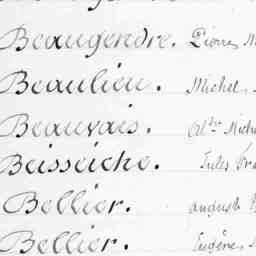 Beaugendre. Pierre
Beaulieu. Michel
Beauvais.
Beisseiche. Jules
Bellier. August
Bellier. Eugène